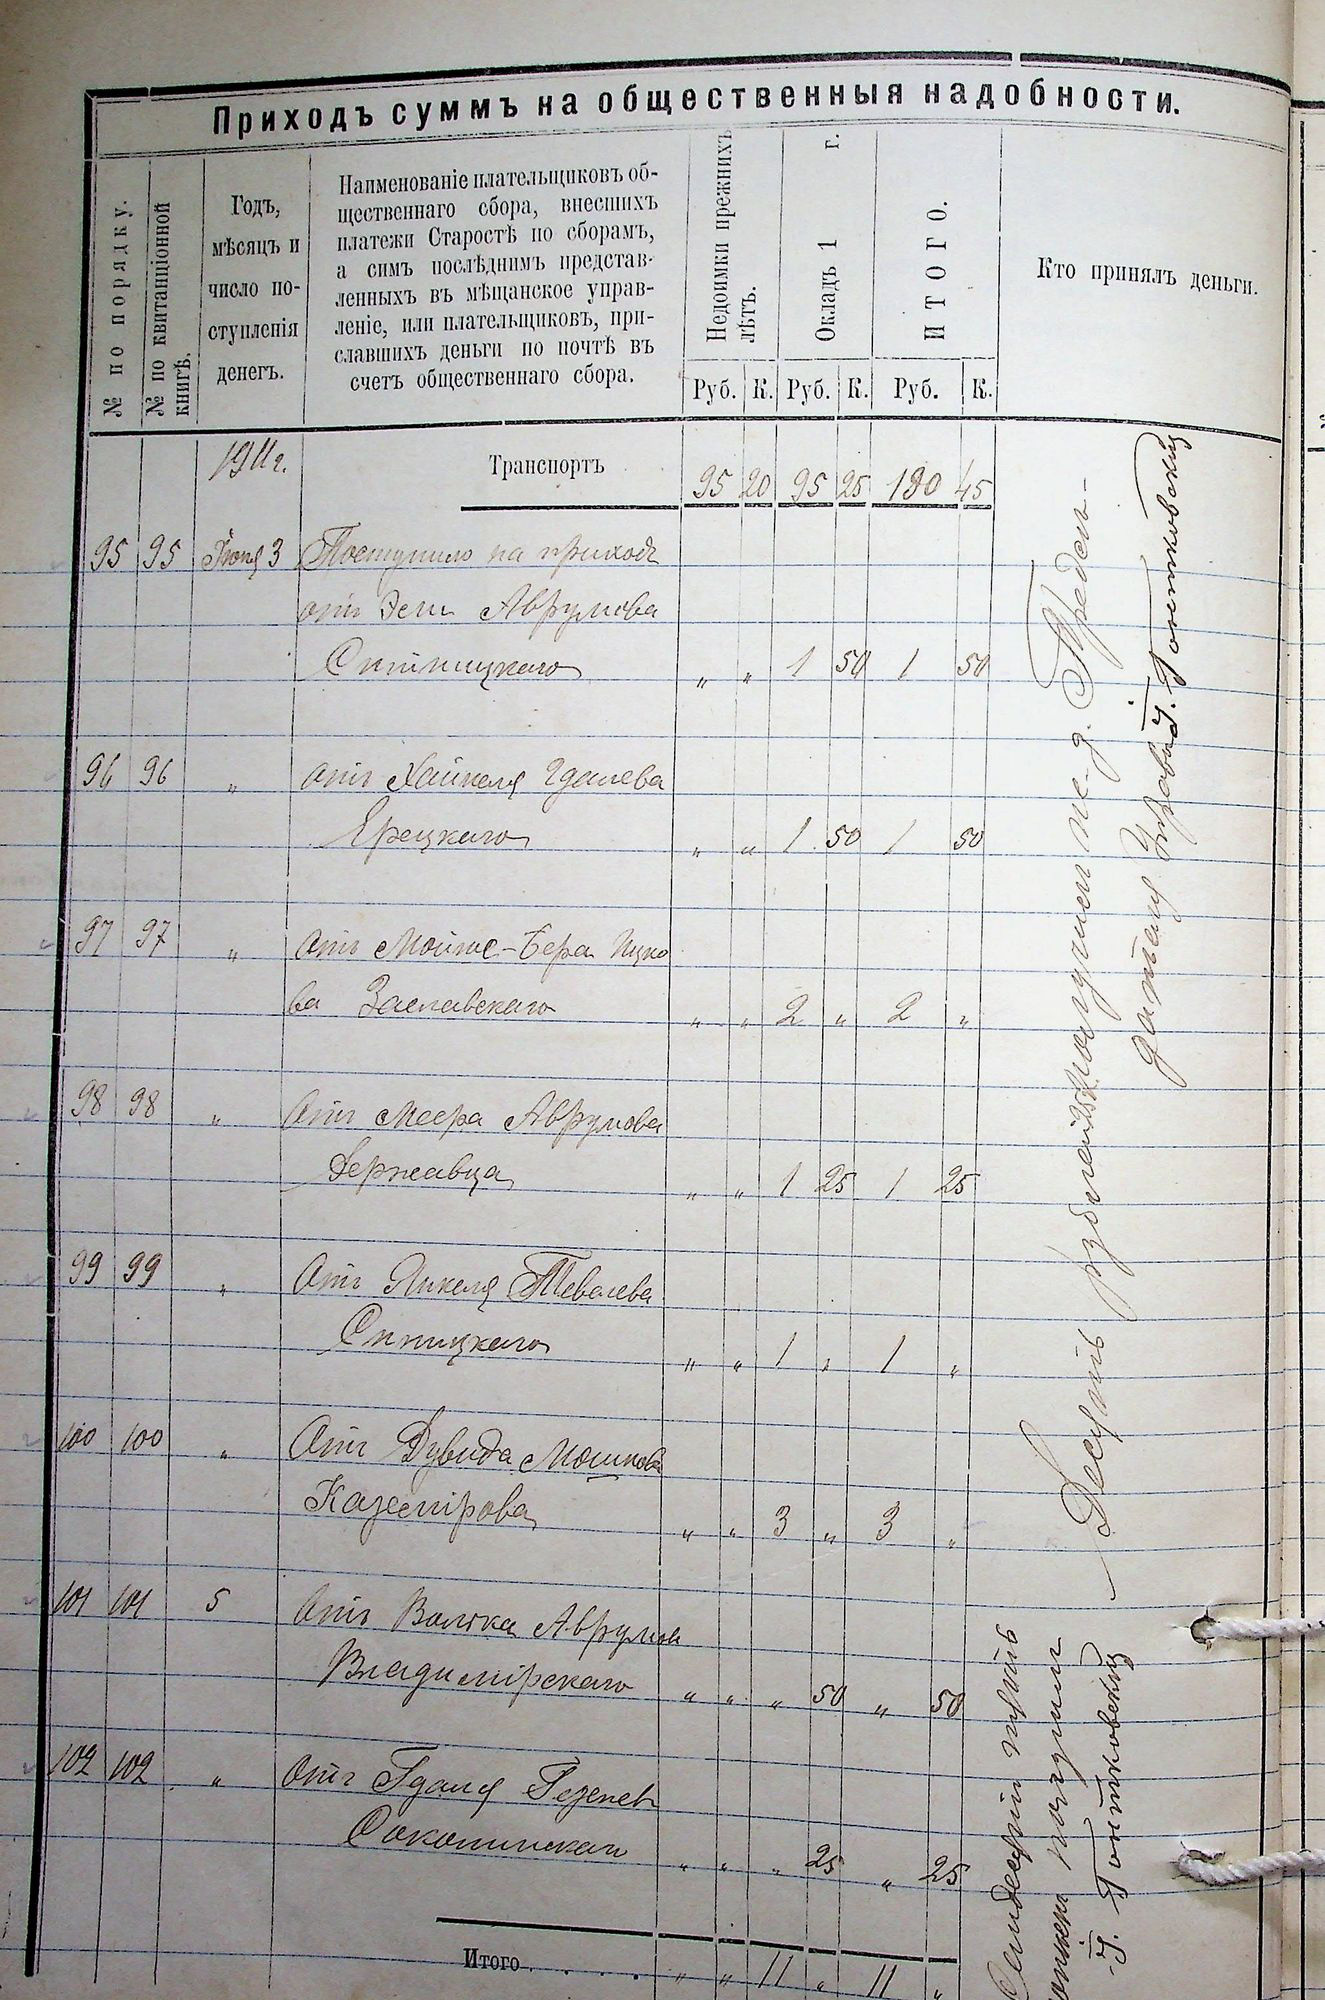 Приходъ суммъ на общественныя надобности.
№ по порядку.
№ по квитанціонной книгѣ.
Годъ,
мѣсяцъ и
число по-
ступленія
денегъ.
Наименованіе плательщиковъ об-
щественнаго сбора, внесшихъ
платежи Старостѣ по сборамъ,
а симъ послѣднимъ представ-
ленныхъ въ мѣщанское управ-
леніе, или плательщиковъ, при-
славшихъ деньги по почтѣ въ
счетъ общественнаго сбора.
Недоимки прежнихъ
лѣтъ.
Окладъ 1 г.
ИТОГО.
Кто принялъ деньги.
Руб. К. Руб. К. Руб. К.
1911 г. Транспортъ 95 20 95 25 190 45
95 95 Іюня 3 Поступило на приходъ
отъ Эли Аврумова
" " 1 50 1 50
96 96 " отъ Хайкеля Гдалева
Ерецкаго " " 1 50 1 50
97 97 " Отъ Мойше-Бера Ицко
ва Заславскаго " " 2 " 2 "
98 98 " Отъ Меера Аврумова
Державца " " 1 25 1 25
99 99 " Отъ Янкеля Тевелева
Синицкаго " " 1 " 1 "
100 100 " Отъ Дувида Мошкова
Каземірова " " 3 " 3 "
101 101 5 Отъ Волька Аврумов
Владимірскаго " " " 50 " 50
102 102 " Отъ Гдаля
" " " 25 " 25
Итого " " 11 " 11 "
Десять рублей получилъ и. д. Предсѣ-
дателя Управы І. Гонтковскій
Семдесятъ пять
копѣекъ получилъ
І. Гонтковскій